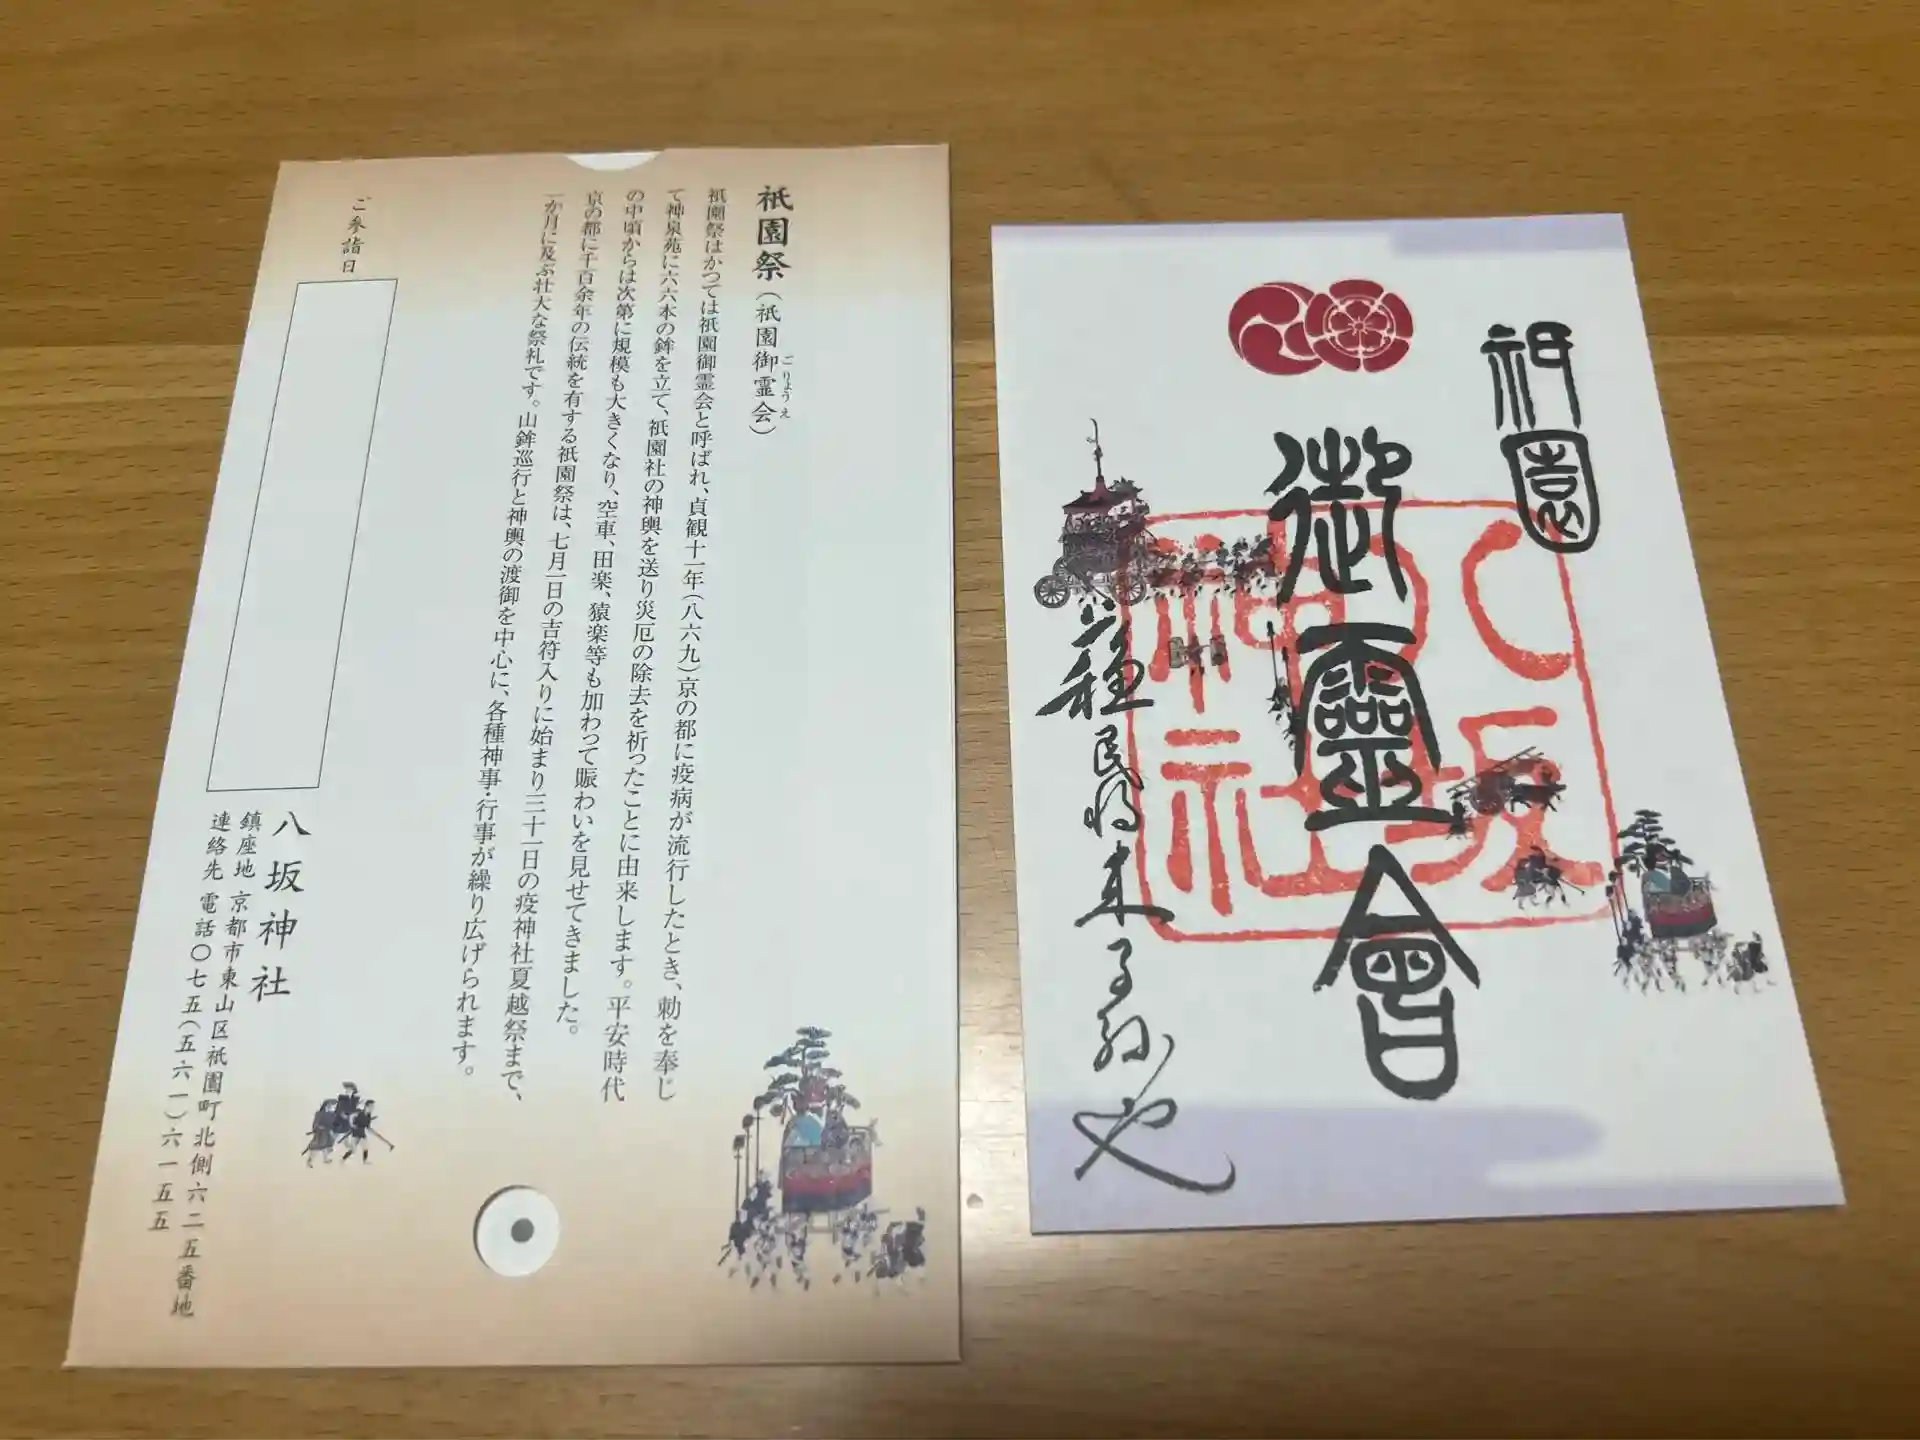 祇園祭(祇園御霊会)
ごりょうえ
祇園祭はかつては祇園御霊会と呼ばれ、貞観十一年(八六九)京の都に疫病が流行したとき、勅を奉じ
て神泉苑に六六本の鉾を立て、祇園社の神輿を送り災厄の除去を祈ったことに由来します。平安時代
の中頃からは次第に規模も大きくなり、空車、田楽、猿楽等も加わって賑わいを見せてきました。
京の都に千百余年の伝統を有する祇園祭は、七月一日の吉符入りに始まり三十一日の疫神社夏越祭まで、
一か月に及ぶ壮大な祭礼です。山鉾巡行と神輿の渡御を中心に、各種神事・行事が繰り広げられます。
ご参詣日
八坂神社
鎮座地 京都市東山区祇園町北側六二五番地
連絡先 電話〇七五(五六一)六一五五
祇園
御靈會
八坂
神社
蘇民将来子孫也